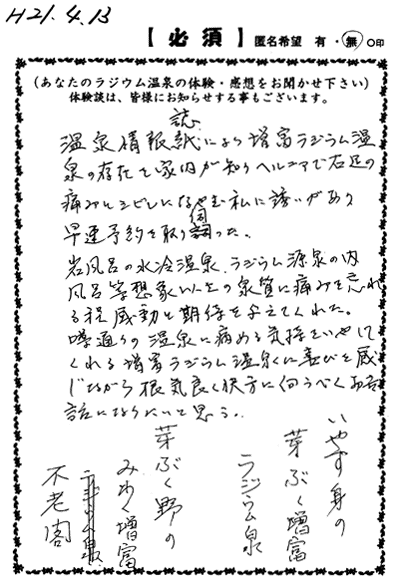 H21.4.13
【必須】 匿名希望 有・無 ○印
(あなたのラジウム温泉の体験・感想をお聞かせ下さい)
体験談は、皆様にお知らせする事もございます。
誌
温泉情報紙により増富ラジウム温
泉の存在を家内が知りヘルニアで右足の
痛みとシビレになやむ私に誘いがあり
早速予約を取り伺った。
岩風呂の水冷温泉、ラジウム源泉の内
風呂等想象いじょうの泉質に痛みを忘れ
る程感動と期待を与えてくれた。
噂通りの温泉に病める気持をいやして
くれる増富ラジウム温泉に喜びを感
じながら根気良く快方に向うべくお世
話になりたいと思う。
いやす身の
芽ぶく増富
ラジウム泉
芽ぶく野の
みわく増富
ラジウム泉
不老閣